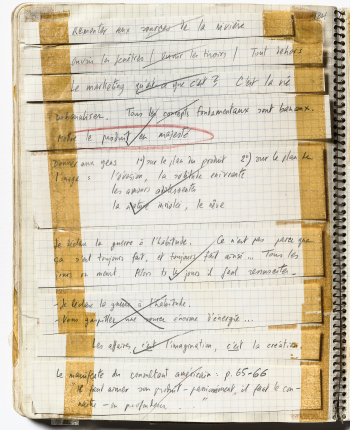 Remonter aux sources de la rivière
Ouvrir les fenêtres / Ouvrir les tiroirs / Tout dehors
Le marketing qu'est-ce que c'est ? C'est la vie
Débanaliser. Tous les concepts fondamentaux sont banaux.
Mettre le produit en majesté
Donner aux gens 1°) sur le plan du produit 2°) sur le plan de
l'image : l'évasion, la enivrante
les amours
la nature, le rêve
Je déclare la guerre à l'habitude. Ce n'est pas parce que
ça s'est toujours fait, et toujours fait ainsi... Tous les
jours on meurt. Alors ts les jours il faut ressusciter.
- Je déclare la guerre à l'habitude.
- Vous gaspillez une source énorme d'énergie...
Les affaires, c'est l'imagination, c'est la création
Le manifeste du consultant américain : p. 65-66
"Il faut aimer son produit - , il faut le con-
naître - en profondeur."